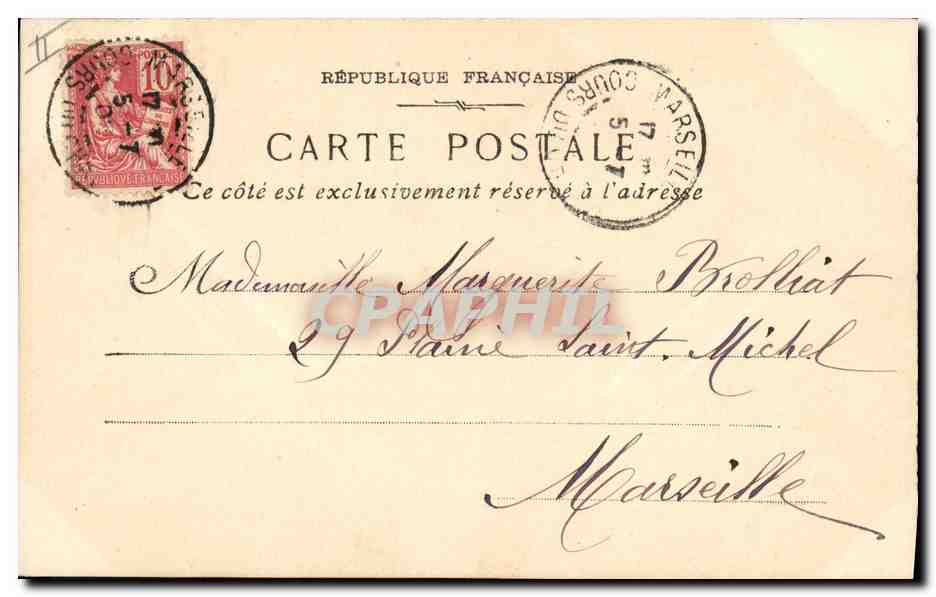 II
POSTES
10
RÉPUBLIQUE FRANÇAISE
MARSEILLE
COURS DU
17
5
RÉPUBLIQUE FRANÇAISE
CARTE POSTALE
MARSEIL
COURS DU
17
5
Ce côté est exclusivement réservé à l'adresse
Mademoiselle Marguerite Brolliat
CPAPHIL
29 Plaine Saint. Michel
Marseille